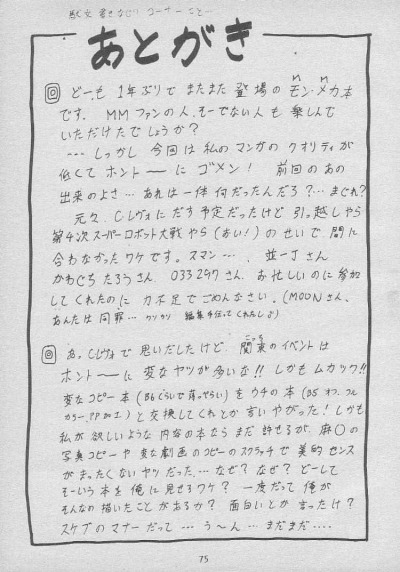 駄文書きなぐりコーナーこと…
あとがき
◎ どーも 1年ぶりで またまた 登場の モン・メカ本
です。 MMファンの人、そーでない人も 楽しんで
いただけたでしょうか?
…しっかし 今回は 私の マンガの クオリティが
低くて ホントーーに ゴメン! 前回の あの
出来のよさ…あれは一体 何だったんだろ?…まぐれ?
元々、C.レヴォに だす 予定だったけど 引っ越しやら
第4次スーパーロボット大戦やら(おい!)の せいで 間に
合わなかったワケです。スマン…、並一丁さん
かわぐち たろうさん、033297さん、お忙しいのに 参加
してくれたのに 力不足で ごめんなさい。(MOONさん、
あんたは 同罪… ウソウソ 編集手伝ってくれたし♪)
◎ あっ、C.レヴォで 思いだしたけど、関東のイベントは
ホントーーに 変な ヤツが 多いな!! しかも ムカツク!!
変なコピー本(B6ぐらいで 薄っぺらい)を ウチの 本(B5 フル
カラー、PP加工)と 交換してくれとか 言いやがった! しかも
私が 欲しいような 内容の 本なら まだ 許せるが、麻〇の
写真コピーや 変な劇画の コピーの スクラッチで 美的 センス
が まったくない ヤツ だった…なぜ? なぜ? どーして
そーいう 本を 俺に 見せるワケ? 一度だって 俺が
そんなの 描いたことが あるか? 面白いとか 言ったけ?
スケブの マナーだって…う〜ん…まだまだ…。
75